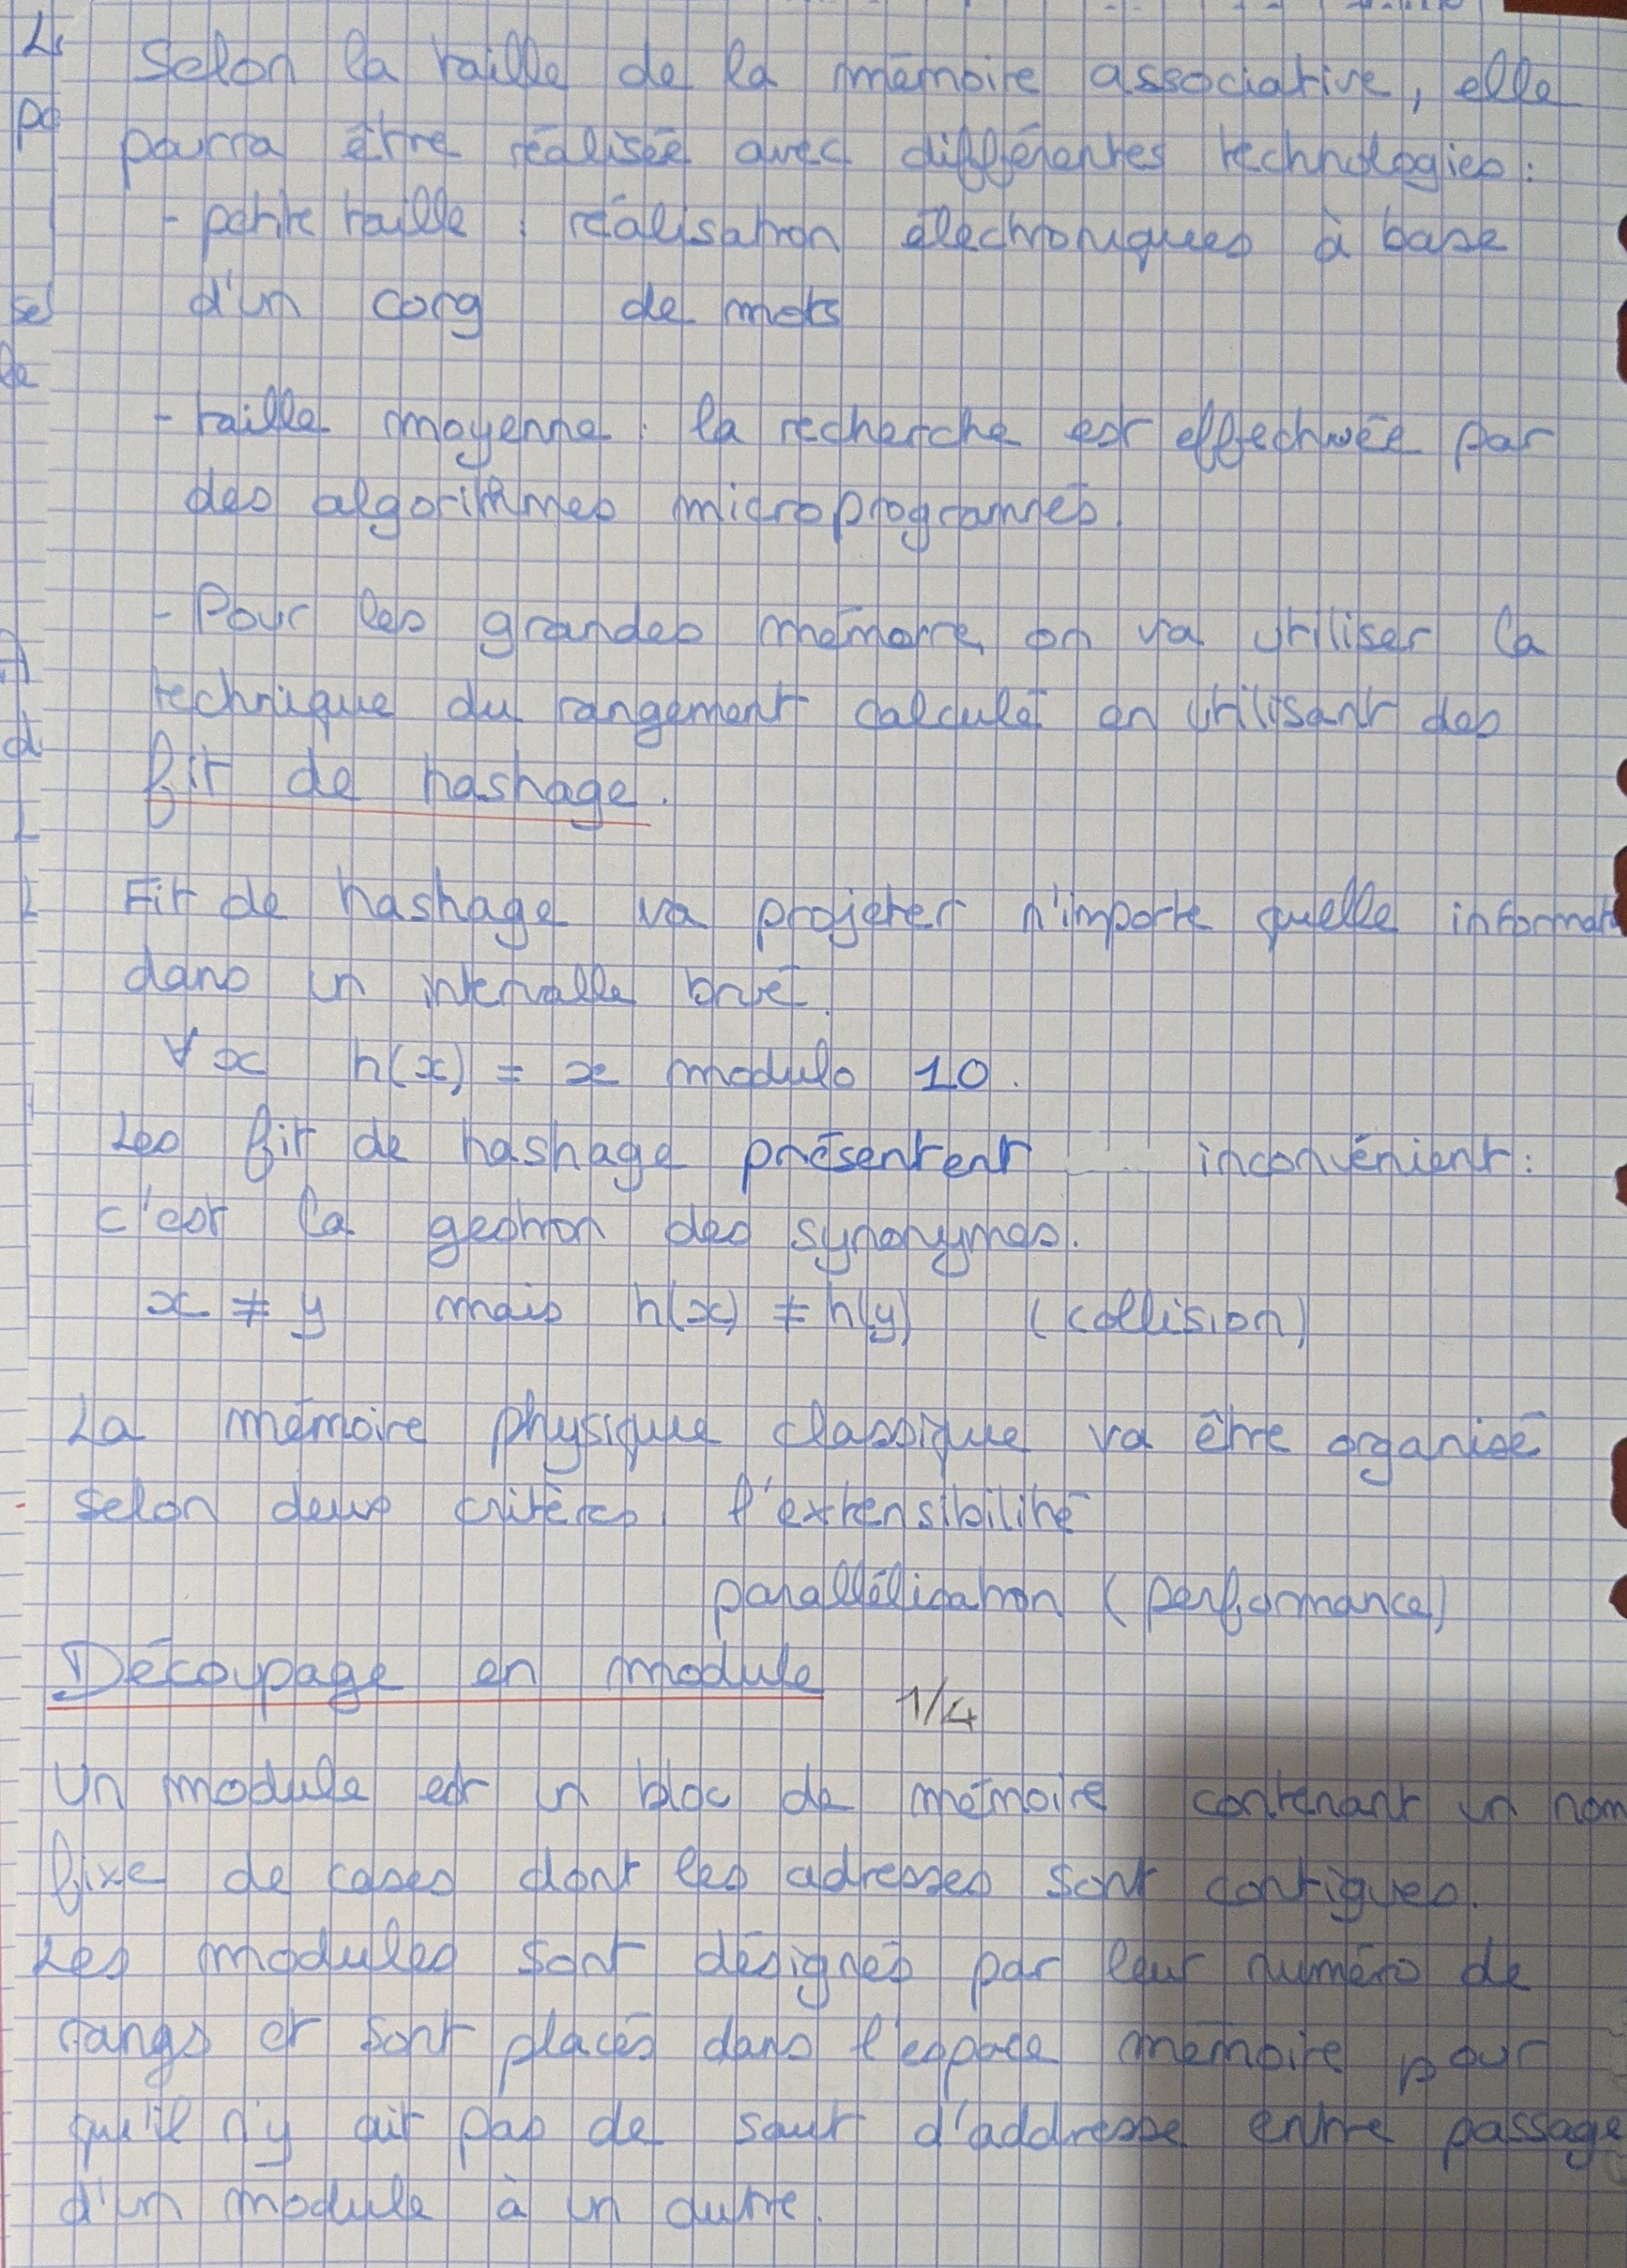 Selon la taille de la mémoire associative, elle
pourra être réalisée avec différentes technologies :
- petite taille : réalisation électroniques à base
d'un corg de mots
- taille moyenne : la recherche est effectuée par
des algorithmes microprogrammés.
- Pour les grandes mémoire, on va utiliser la
technique du rangement calculé en utilisant des
fit de hashage.
Fit de hashage va projeter n'importe quelle informat
dans un intervalle privé.
∀x h(x) = x modulo 10.
Les fit de hashage présentent inconvénient :
c'est la gestion des synonymes.
x ≠ y mais h(x) ≠ h(y) (collision)
La mémoire physique classique va être organisé
selon deux critères, l'extensibilité
parallélisation (performance)
Découpage en module
1/4
Un module est un bloc de mémoire contenant un nom
fixe de cases dont les adresses sont contigues.
Les modules sont désignés par leur numéro de
rangs et sont placés dans l'espace mémoire pour
qu'il n'y ait pas de saut d'addresse entre passage
d'un module à un autre.